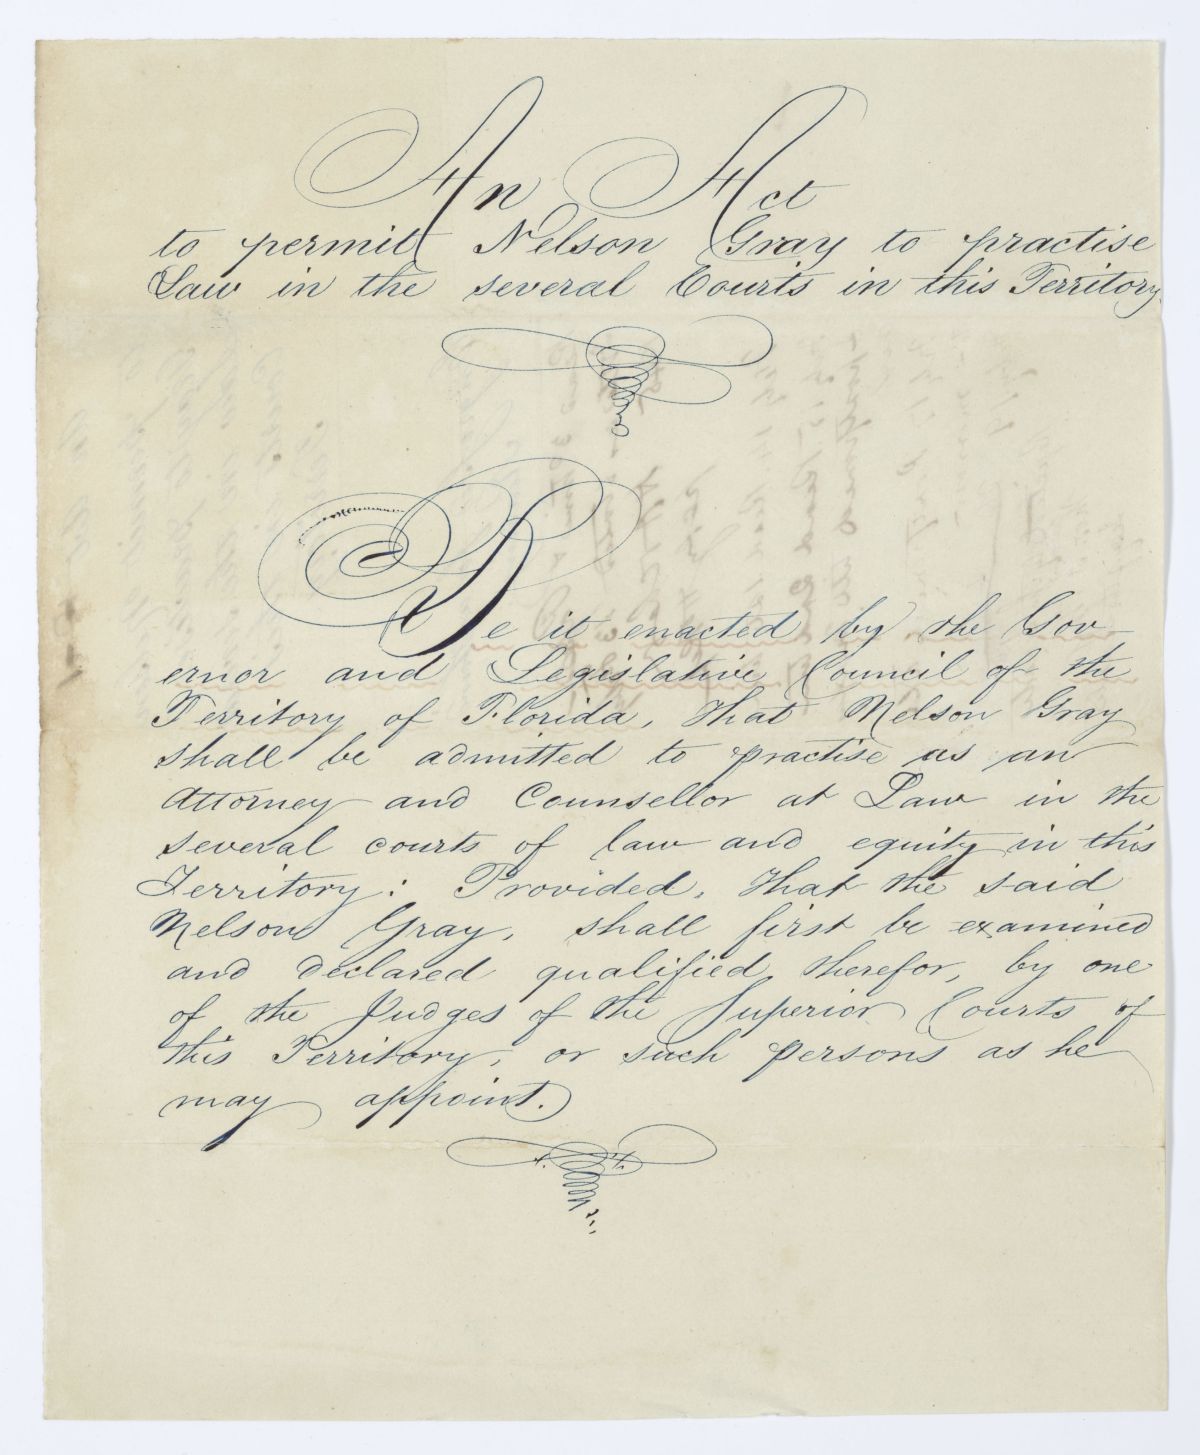 An Act
to permit Nelson Gray to practise
Law in the several Courts in this Territory.
Be it enacted by the Gov
ernor and Legislative Council of the
Territory of Florida, that Nelson Gray
shall be admitted to practise as an
Attorney and Counsellor at Law in the
several courts of law and equity in this
Territory: Provided, that the said
Nelson Gray, shall first be examined
and declared qualified therefor, by one
of the Judges of the Superior Courts of
this Territory, or such persons as he
may appoint.